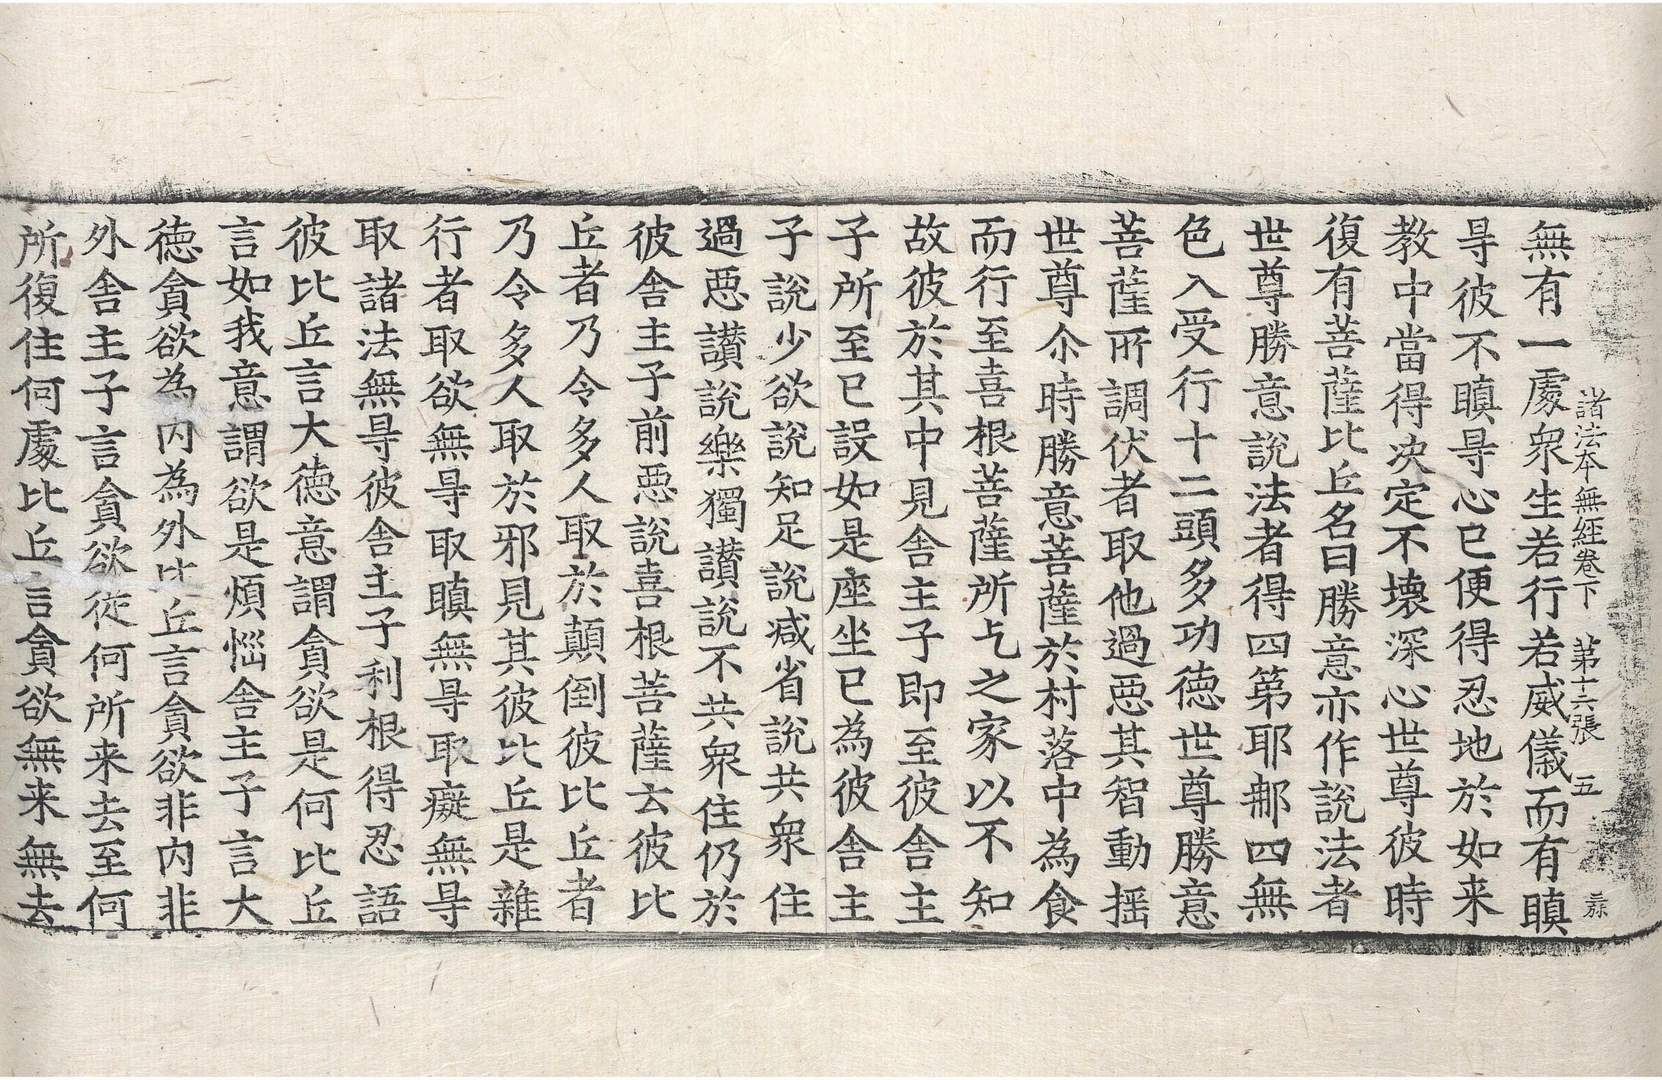 諸法本無經卷下 第十六張 五
無有一處衆生若行若威儀而有瞋
㝵彼不瞋㝵心已便得忍地於如来
教中當得决定不壞深心世尊彼時
復有菩薩比丘名曰勝意亦作說法者
世尊勝意說法者得四第耶䣌四無
色入受行十二頭多功徳世尊勝意
菩薩所調伏者取他過惡其智動揺
世尊尒時勝意菩薩於村落中為食
而行至喜根菩薩所乞之家以不知
故彼於其中見舍主子即至彼舍主
子所至已設如是座坐已為彼舍主
子說少欲說知足說减省說共衆住
過惡讃說樂獨讃說不共衆住仍於
彼舍主子前惡說喜根菩薩云彼比
丘者乃令多人取於顛倒彼比丘者
乃令多人取於邪見其彼比丘是雜
行者取欲無㝵取瞋無㝵取癡無㝵
取諸法無㝵彼舍主子利根得忍語
彼比丘言大徳意謂貪欲是何比丘
言如我意謂欲是煩惱舍主子言大
徳貪欲為内為外比丘言貪欲非内非
外舍主子言貪欲従何所来去至何
所復住何處比丘言貪欲無来無去